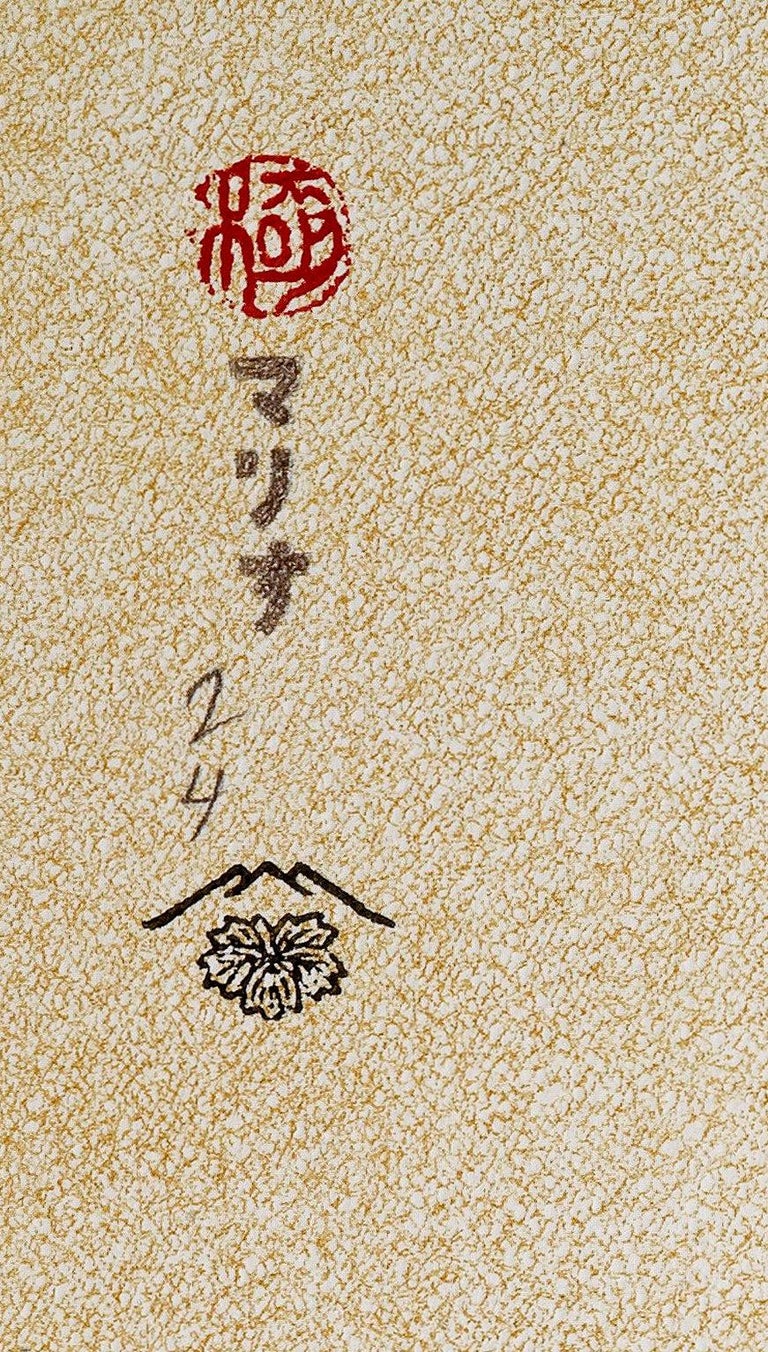 マリナ
24